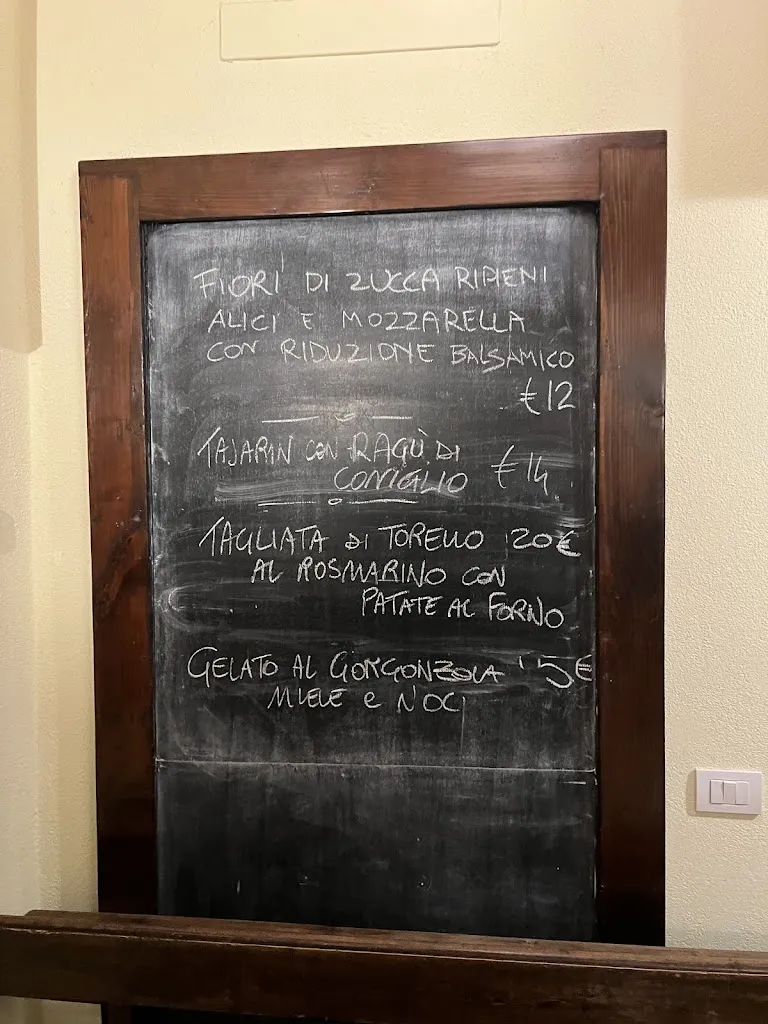 FIORI DI ZUCCA RIPIENI
ALICI E MOZZARELLA
CON RIDUZIONE BALSAMICO
€12
TAJARIN CON RAGÙ DI
CONIGLIO €14
TAGLIATA DI TORELLO 20€
AL ROSMARINO CON
PATATE AL FORNO
GELATO AL GORGONZOLA 5€
MIELE e NOCI